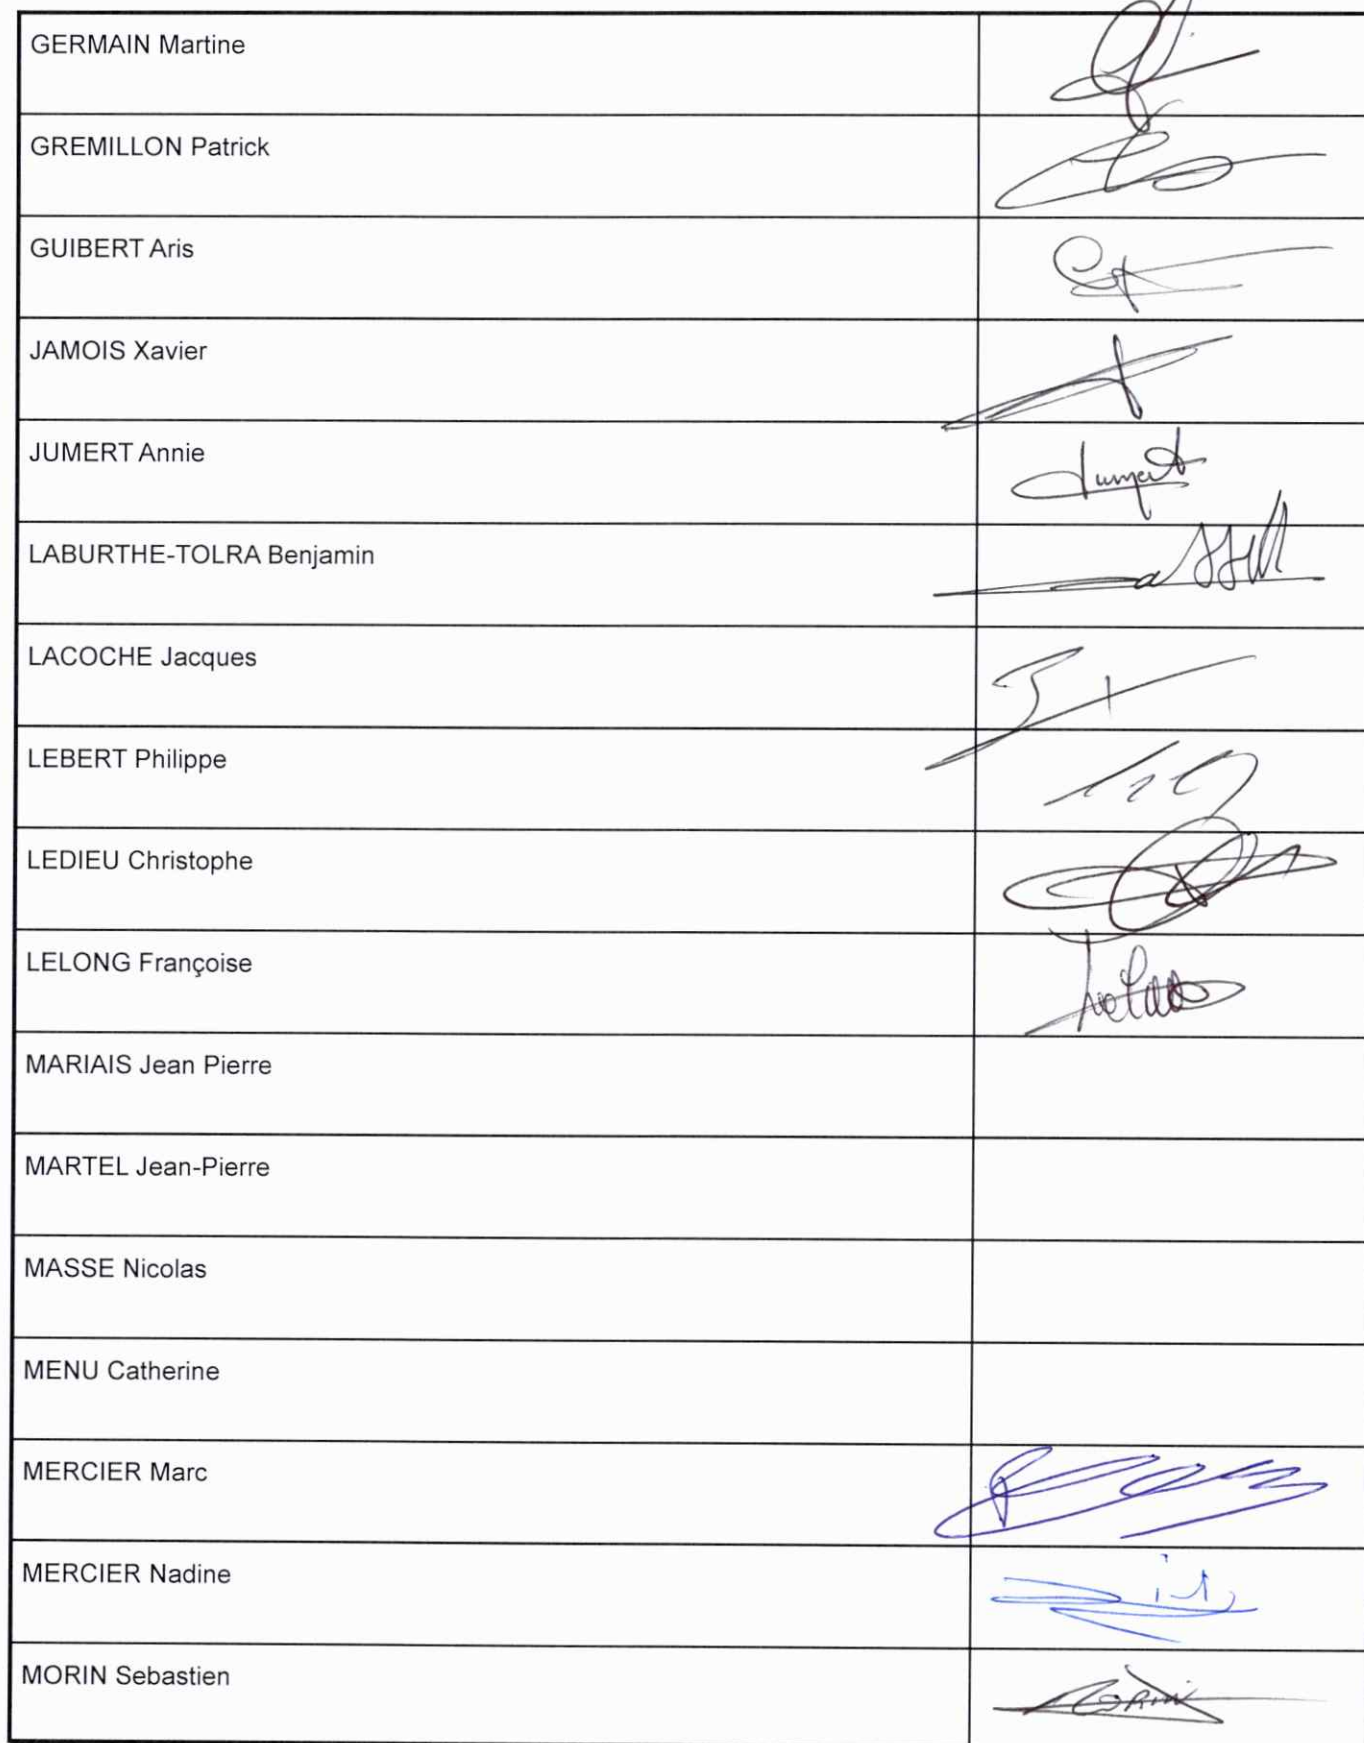 GERMAIN Martine
GREMILLON Patrick
GUIBERT Aris
JAMOIS Xavier
JUMERT Annie
Jumert
LABURTHE-TOLRA Benjamin
LACOCHE Jacques
LEBERT Philippe
LEDIEU Christophe
LELONG Françoise
MARIAIS Jean Pierre
MARTEL Jean-Pierre
MASSE Nicolas
MENU Catherine
MERCIER Marc
MERCIER Nadine
MORIN Sebastien